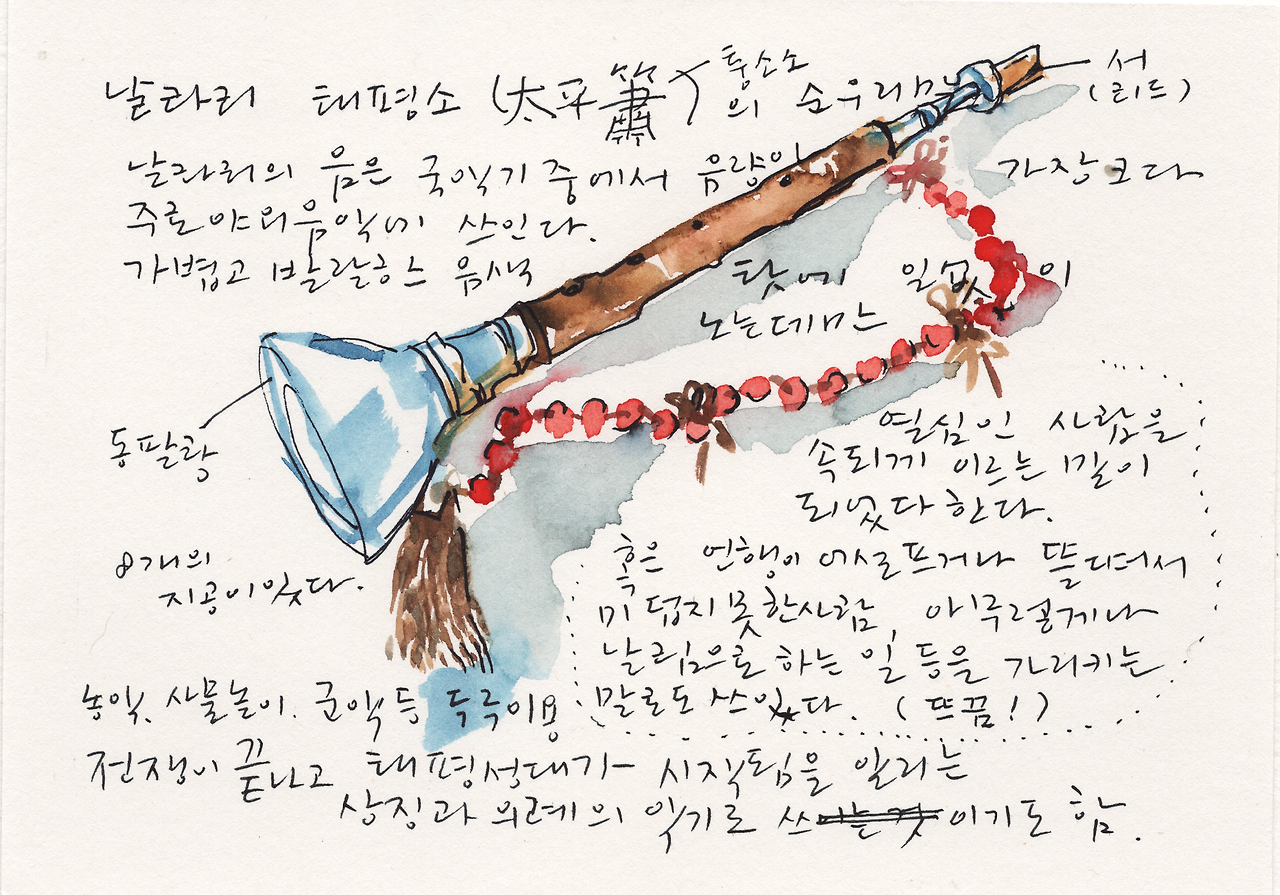 날라리 태평소 (太平簫) 퉁소소
의 순우리말
서
(리드)
날라리의 음은 국악기 중에서 음량이 가장 크다
주로 야외음악에 쓰인다.
가볍고 발랄한 음색 탓에 일없이
노는데만
열심인 사람을
속되게 이르는 말이
되었다 한다.
동팔랑
8개의
지공이 있다.
혹은 언행이 어설프거나 들떠서
미덥지 못한 사람, 아무렇게나
날림으로 하는 일 등을 가리키는
말로도 쓰였다. (뜨끔!)
농악, 사물놀이, 군악 등 두루 이용
전쟁이 끝나고 태평성대가 시작됨을 알리는
상징과 의례의 악기로 쓰이기도 함.